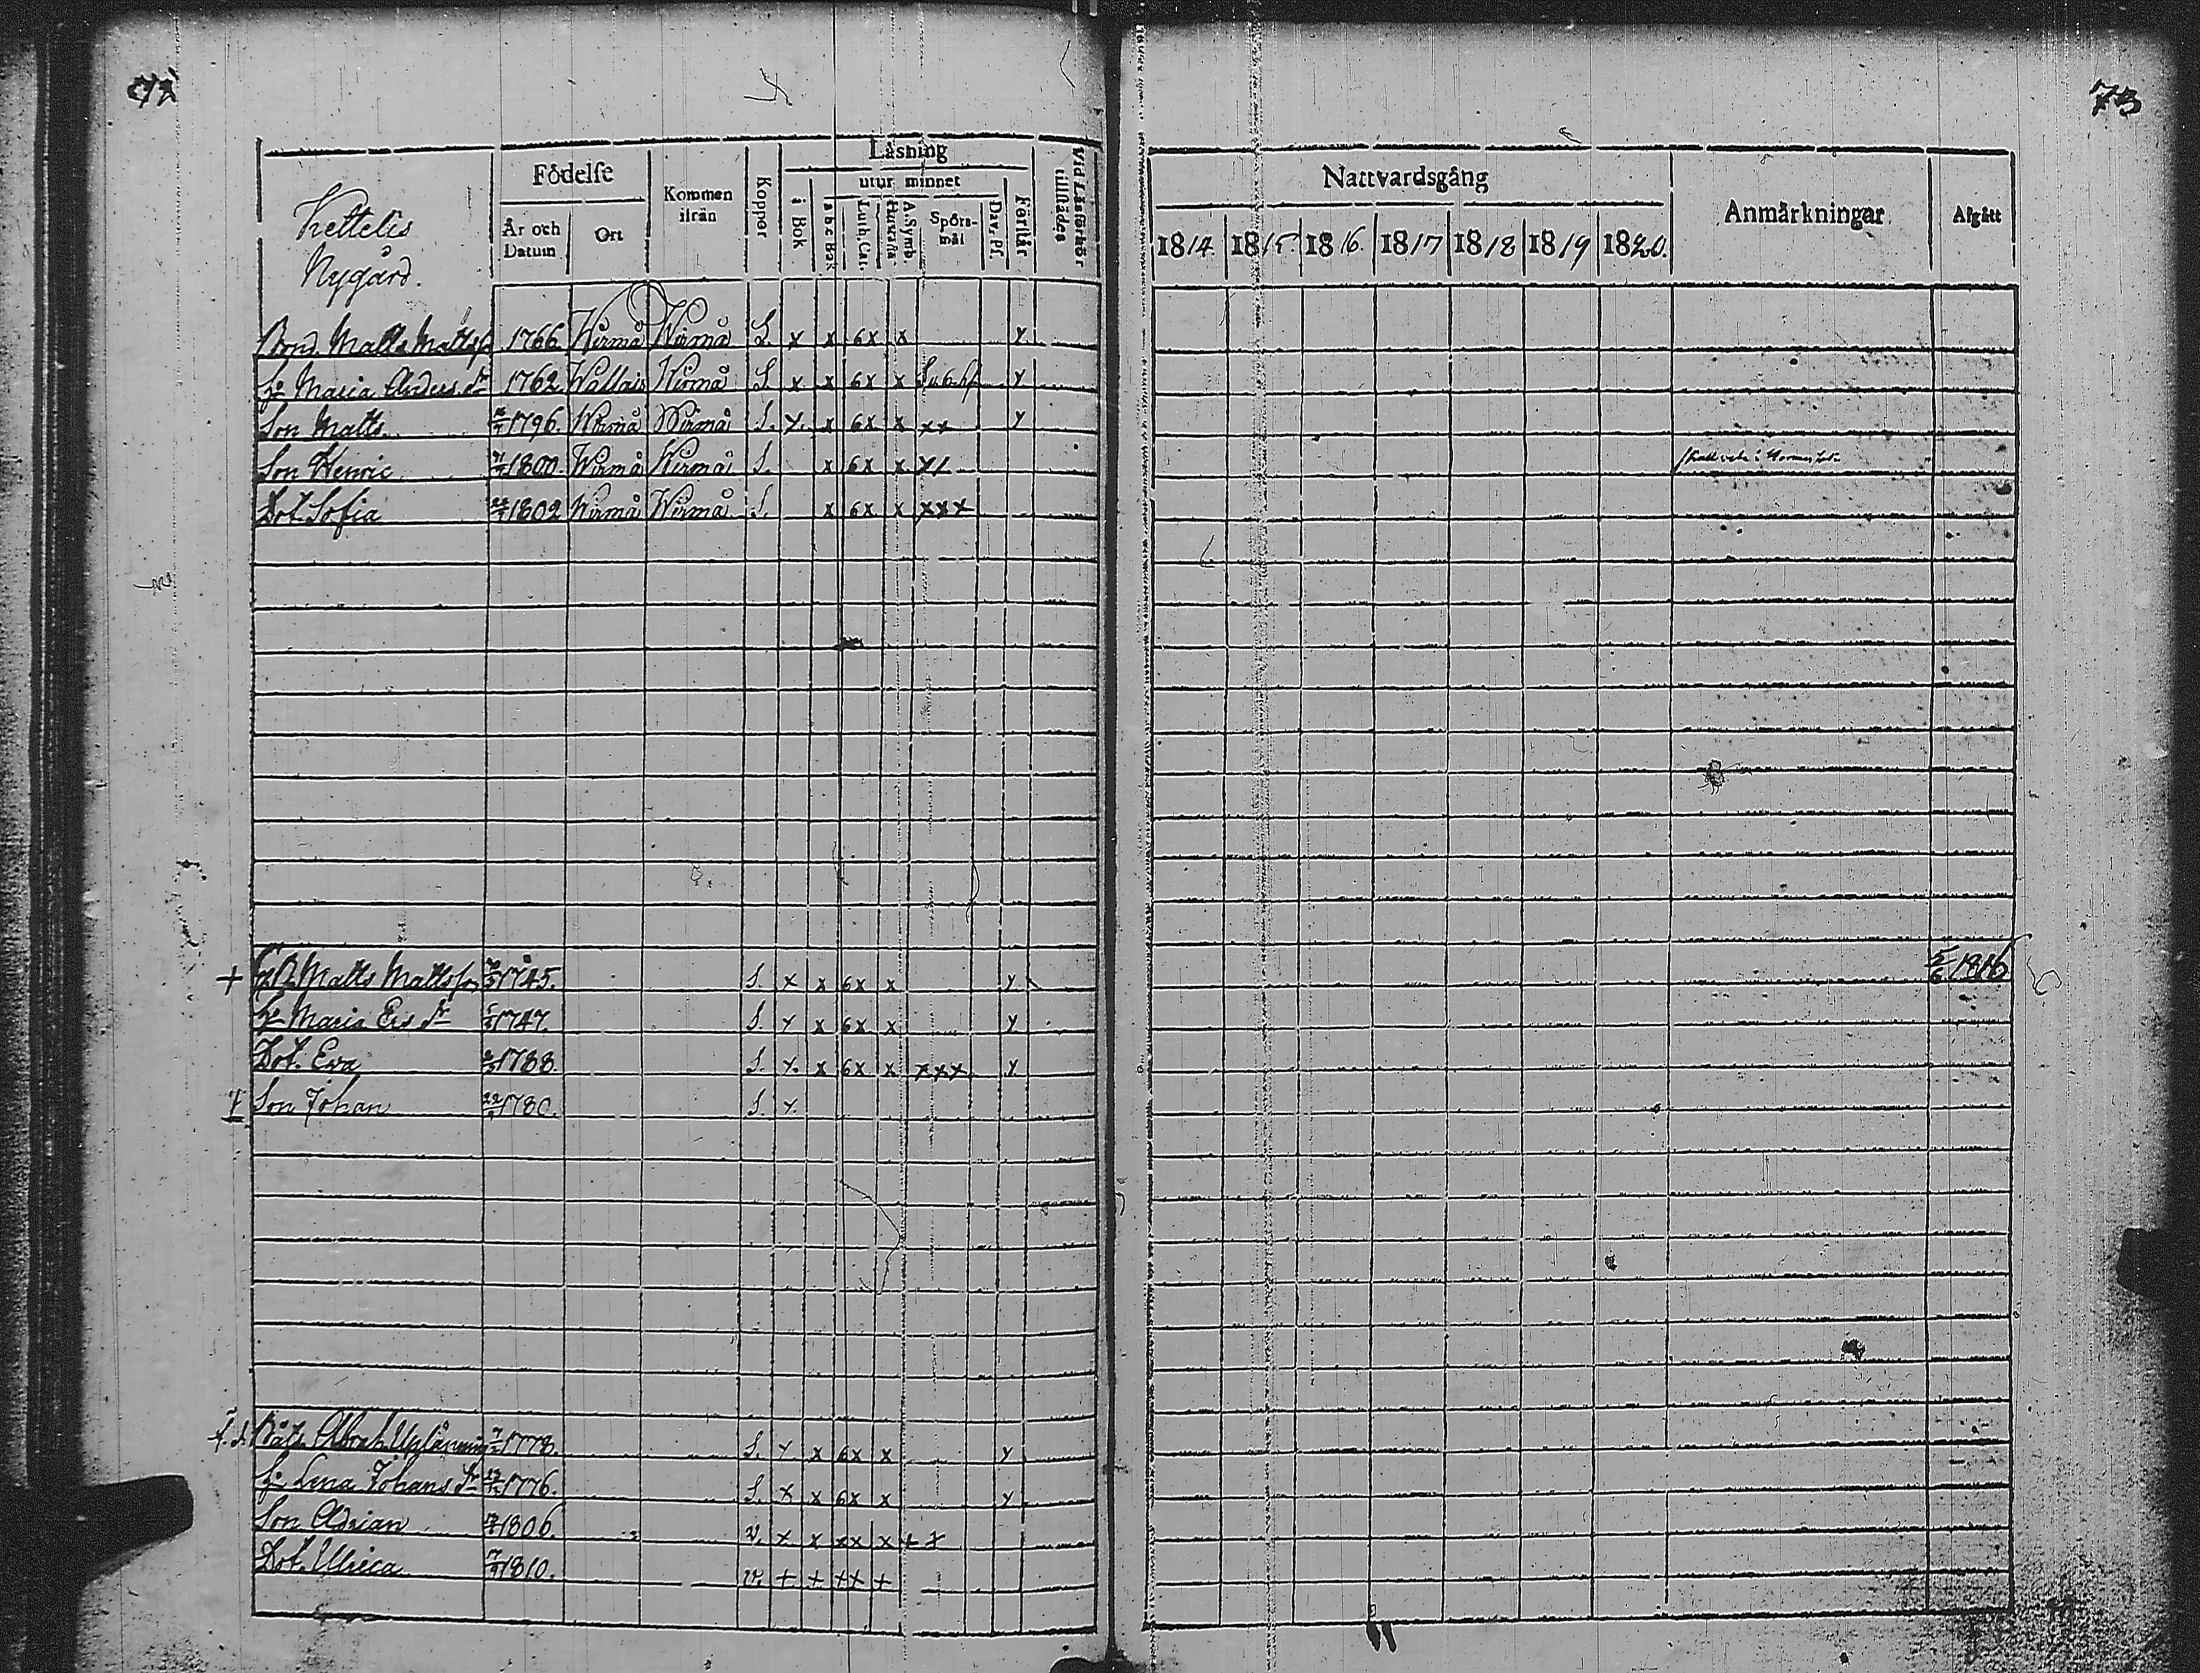 72
73
Kettelis
Nygård.
Födelse
År och Datum
Ort
Kommen ifrån
Koppor
Läsning
i Bok
utur minnet
a b c Bok
Luth. Cat.
Hustafla.
A. Symb.
Spörs-
mål
Dav. Ps.
Förstår
Vid Läseförhör
tillstädes
Nattvardsgång
1814. 1815. 1816. 1817 1818 1819 1820.
Anmärkningar
Afgått
Bond. Matts Mattss 1766 Wirmå Wirmå S. x x 6x x x
h. Maria Anders dr 1762 Wallais Wirmå S x x 6x x x
Son Matts 1796. Wirmå Wirmå S. x. x 6x x xx x
Son Henric 1800. Wirmå Wirmå S. x 6x x
Dot. Sofia 1802 Wirmå Wirmå S. x 6x x xxx
+ Matts Mattsson 1745. S. x x 6x x x 5/6 1816
h. Maria Ers dr 1747. S. x x 6x x x
Dot. Eva 1788. S. x. x 6x x xxx x
Son Johan 22 1780. S. x.
Abrah. 1778. S. x x 6x x x
h. Lena Johans dr 1776. S. x x 6x x x
Son Adrian 1806. v. x x xx x + x
Dot. Ulrica 1810. v. + + ++ +